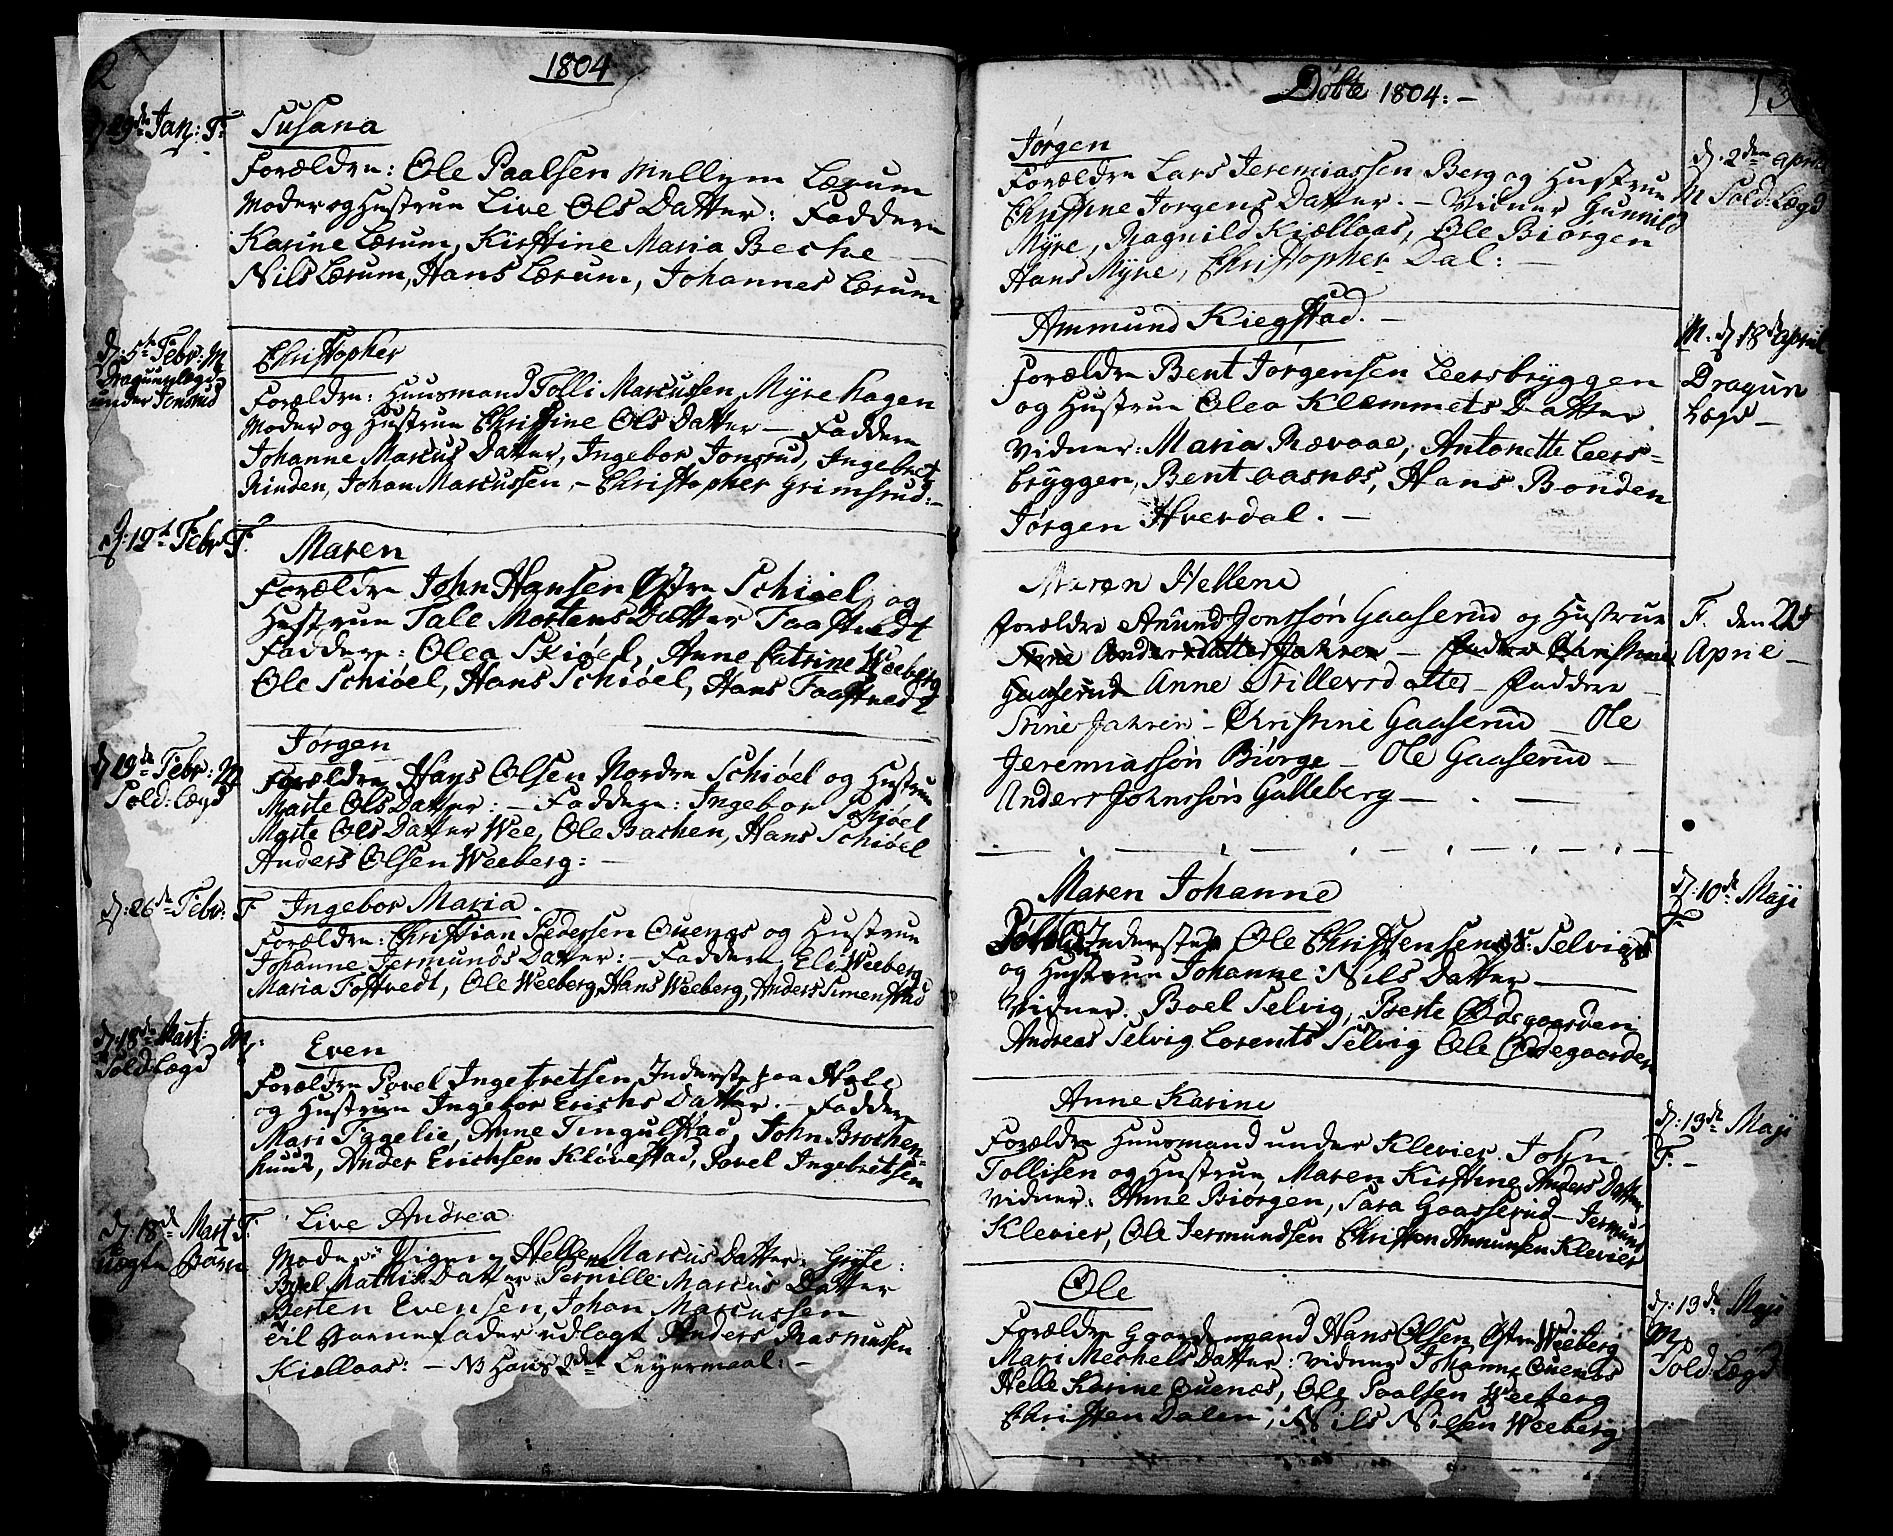 2
1804
d. 29de Jan: F:
Susana
Forældre: Ole Paalsen Mellem Lærum
Moder og Hustrue Live Ols Datter: Faddere
Karine Lærum, Kirstine Maria Beche —
Nils Lærum, Hans Lærum, Johannes Lærum
d: 5te Febr: M
Dragunlægd
under Jonsrud
Christopher
Forældre: Huusmand Tolli Marcussen Myrehagen
Moder og Hustrue Christine Ols Datter — Faddere
Johanne Marcus Datter, Ingebor Jonsrud, Ingebret
Rinden, Johan Marcussen, — Christopher Grimsrud: —
d: 12te Febr F.
Maren
Forældre John Hansen Østre Schiøel og
Hustrue Tale Mortens Datter Taastvedt
Faddere: Olea Skiøel, Anne Catrine Weeberg
Ole Schiøel, Hans Schiøel, Hans Taastvedt
d 19de Febr: M
Sold: Lægd
Jørgen
Forældre Hans Olsen Nordre Schiøel og Hustrue
Marte Ols Datter: — Faddere: Ingebor Schiøel
Marte Ols Datter Wee, Ole Bachen, Hans Schiøel
Anders Olsen Weeberg: —
d: 26de Febr: F
Ingebor Maria.
Forældre: Christian Pedersen Quenæs og Hustrue
Johanne Jermunds Datter: — Faddere Eli Weeberg
Maria Tostvedt, Ole Weeberg, Hans Weeberg, Anders Simenstad
d: 18de Mart: M:
Sold: Lægd
Even
Forældre Povel Ingebretsen Inderste paa Hole
og Hustrue Ingebor Erichs Datter. — Faddere
Mari Fegelie, Anne Tingulstad, John Brochen-
huus, Ander Erichsen Kløvestad, Povel Ingebretsen
d: 18de Mart F:
uægte Barn
Live Andrea
Moder: Pigen Helle Marcus Datter: Gryte:
Boel Mathis Datter Pernille Marcus Datter
Berten Evensen, Johan Marcussen
til Barnefader udlagt Anders Rasmussen
Kiøllaas: — NB Hans 2det Leyermaal: —
3
Døbte 1804: —
Jørgen
Forældre Lars Jeremiassen Berg og Hustrue
Christine Jørgens Datter. — Vidner Gunnild
Myre, Ragnild Kiøllaas, Ole Biørgen
Hans Myre, Christopher Dal: —
d: 2den April
M Sold: Lægd
Ammund Kiegstad. —
Forældre Bent Jørgensen Leersbryggen
og Hustrue Olea Klemmets Datter
Vidner: Maria Rævaae, Antonette Leers-
bryggen, Bent Aasnæs, Hans Bonden
Jørgen Hverdal. —
M. d 18de April
Dragun
Lægd —
Maren Hellene
forældre Amund Jonssøn Gaaserud og Hustrue
Stine Andersdatter Jahren — Faddre Christine
Gaaserud Anne Stillevsdatter — Faddere —
Stine Jahren — Christine Gaaserud — Ole
Jeremiassøn Biørge — Ole Gaaserud —
Anders Johnssøn Galleberg — . —
F. den 22d
Aprie —
Maren Johanne
Inderste Ole Christensen Selvig
og Hustrue Johanne Nils Datter —
Vidner. Boel Selvig, Berte Ødegaarden
Andreas Selvig Lorents Selvig Ole Ødegaarden
d: 10de Maji
F
Anne Karine
Forældre Huusmand under Klevier John
Tollisen og Hustrue Maren Kirstine Anders Datter
Vidner: Anne Biørgen, Sara Gaasserud — Jermund
Klevier, Ole Jermundsen Christen Ammunsen Klevier
d: 13de Maji
F. —
Ole
Forældre Gaardemand Hans Olsen Østre Weeberg
Mari Mechels Datter: Vidner Johanne Quenæs
Helle Karine Quenæs, Ole Paalsen Weeberg
Christen Dalen, Nils Nilsen Weeberg
d: 13de Maji
M,
Sold: Lægd